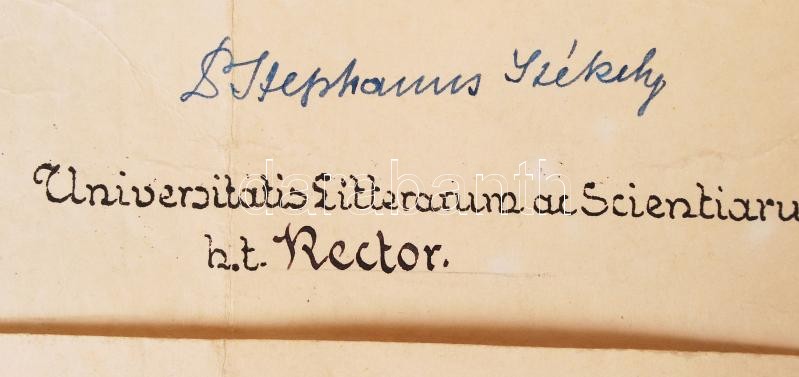 D Stephanus Székely
Universitatis Litterarum ac Scientiaru
h.t. Rector.
darabanth